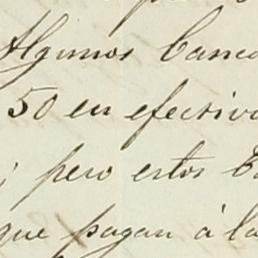 Algunos banco
50 en efectivo
; pero estos B
que pagan á la